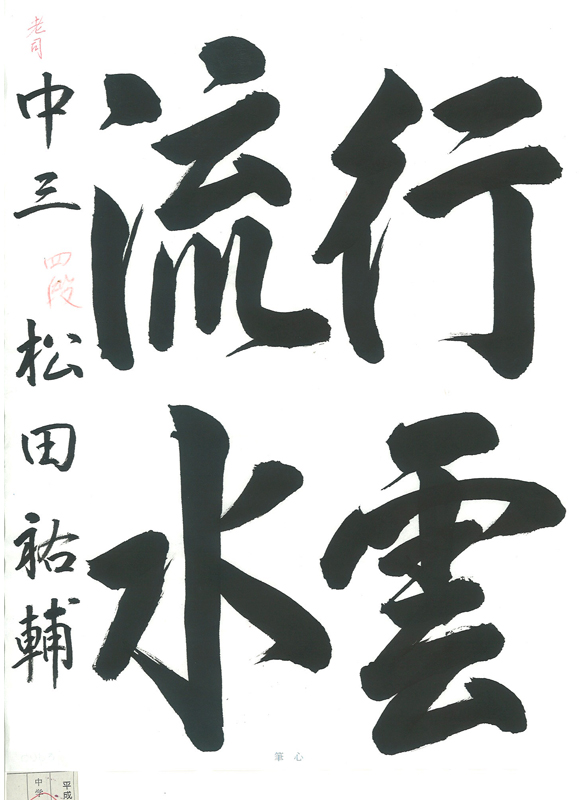 行雲
流水
中三 四段 松田祐輔
筆心
平成
中学